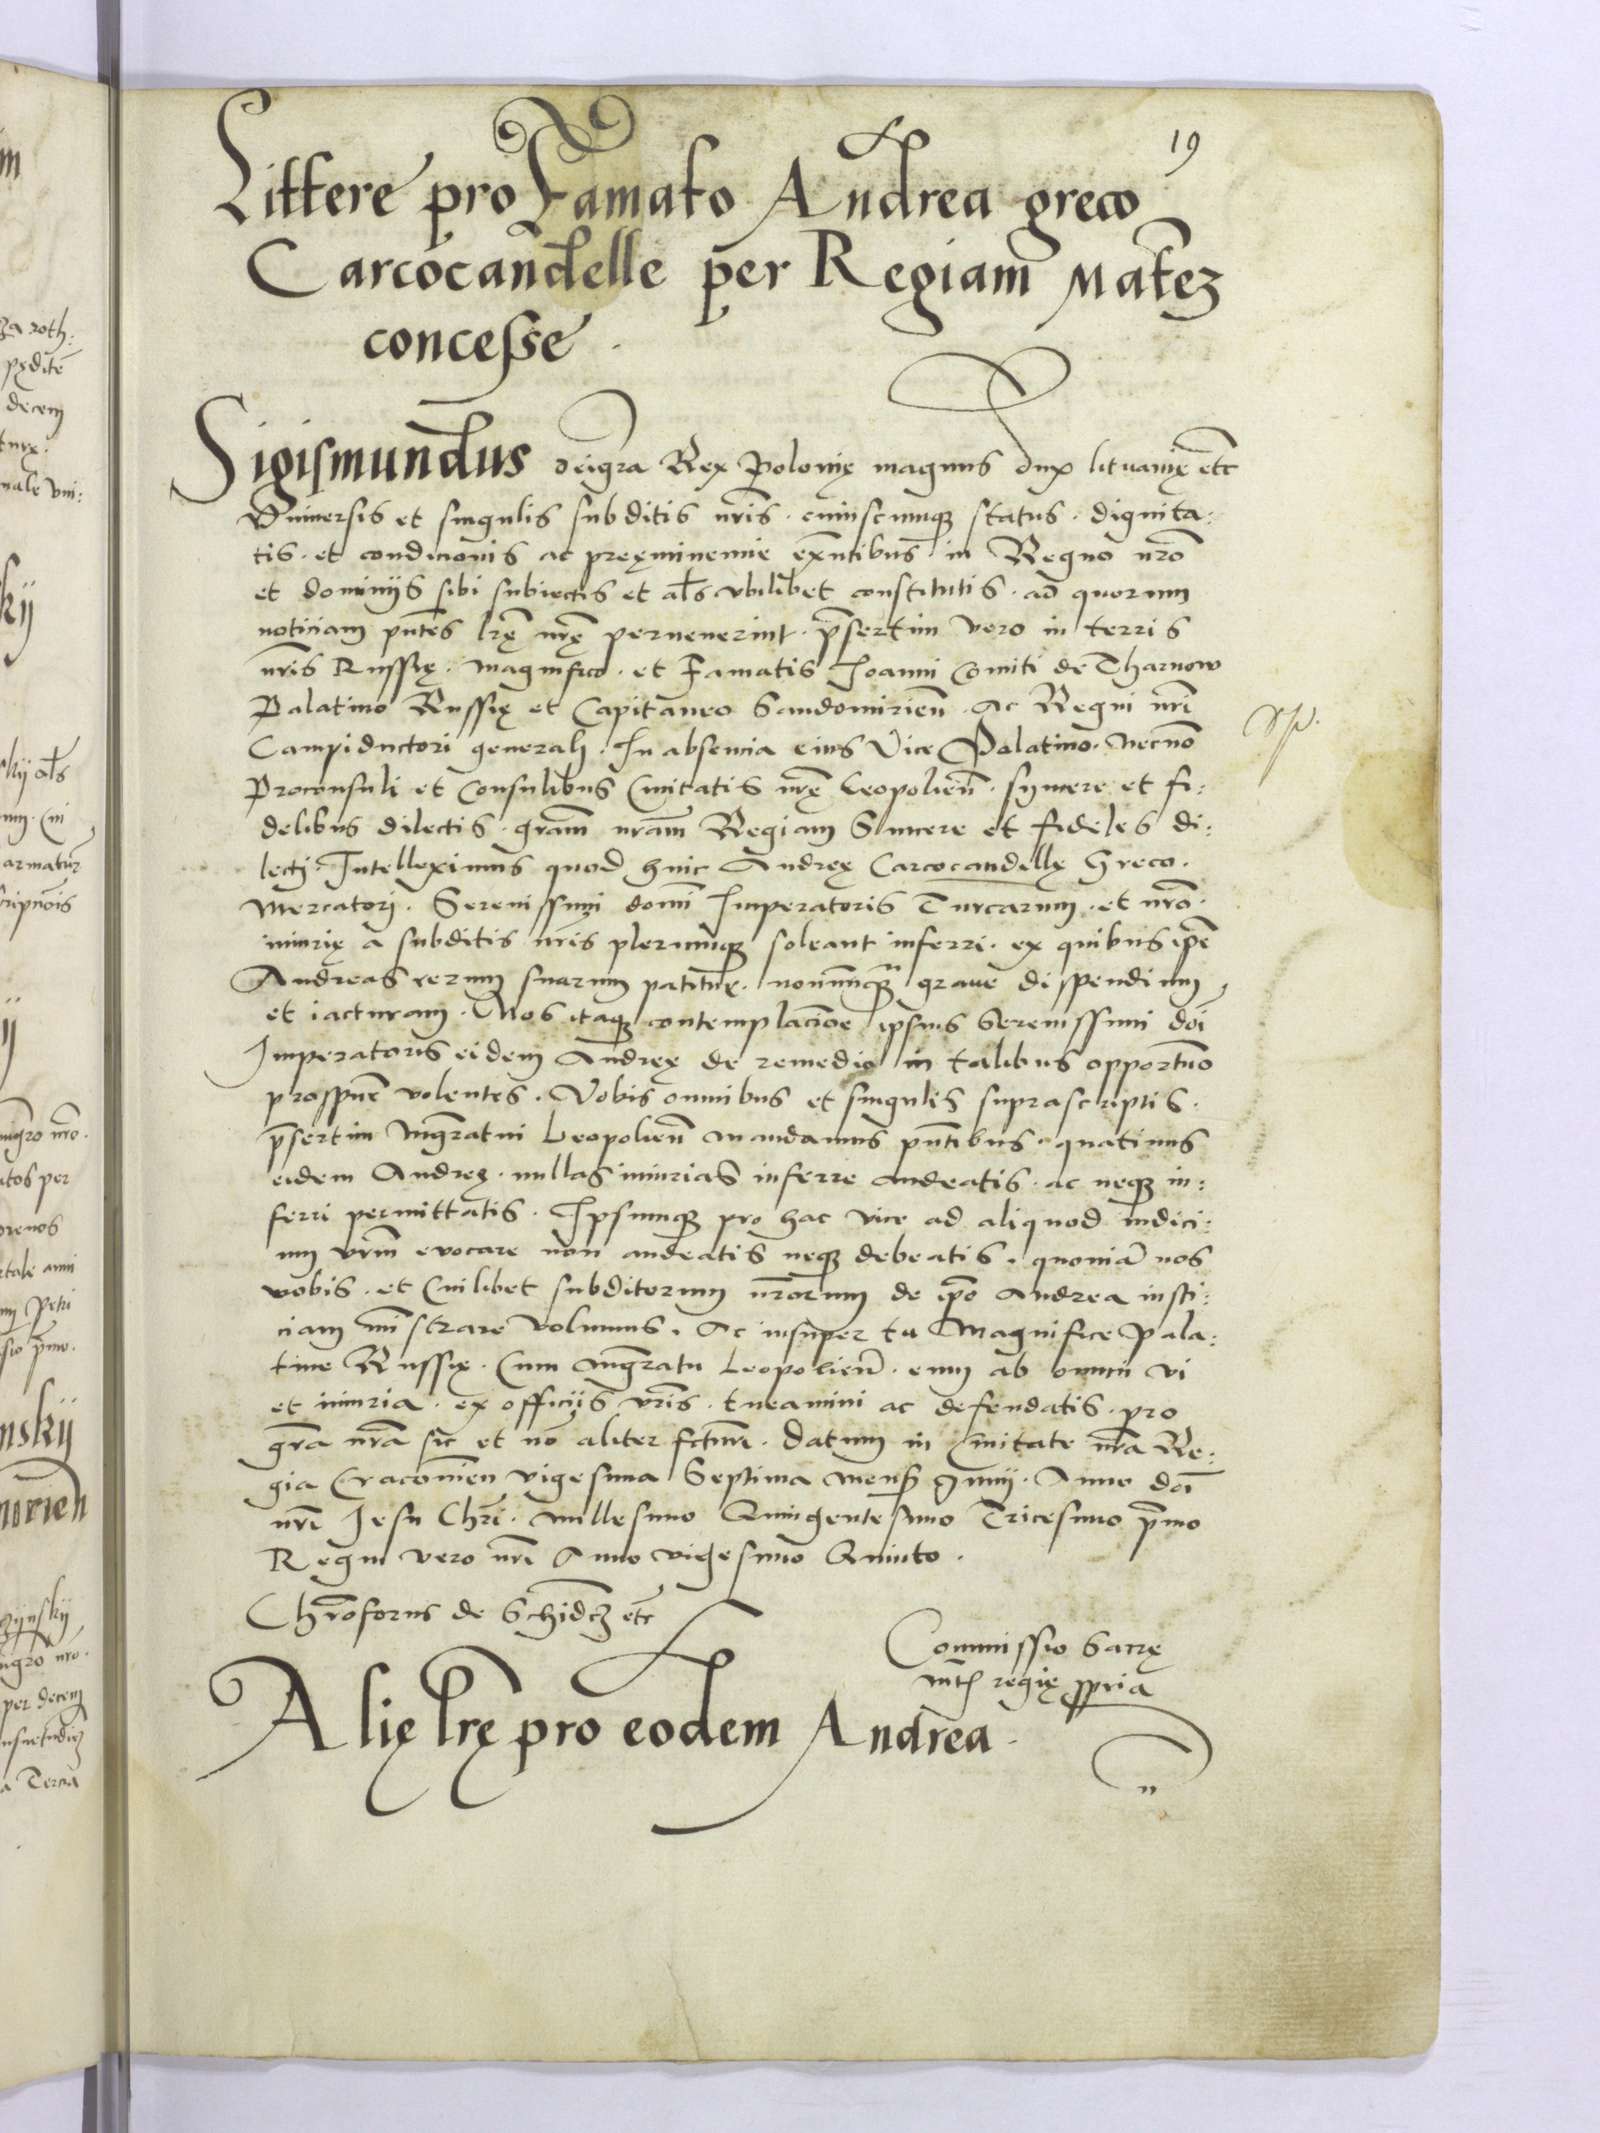 19
Littere pro Famato Andrea greco
Carcocandelle per Regiam Matēz
concesse.
Sigismundus dei gra Rex Polonię magnus dux lituanię etc
Vniuersis et singulis subditis nris. cuiuscunque status. dignita:
tis. et condicionis ac preęminencie exñtibus in Regno nro
et dominijs sibi subiectis et als vbilibet constitutis. ad quorum
noticiam pñtes lrę nrę peruenerint. p̄sertim vero in terris
nris Russię. Magnifico. et Famatis Joanni Comiti de Tharnow
Palatino Russię et Capitaneo Sandomirień. Ac Regni nri
Campiductori generali. In absencia eius Vice Palatino. necno
Proconsuli et Consulibus Ciuitatis nrę Leopolień. syncere et fi:
delibus dilectis. gram nram Regiam Sincere et fideles di:
lecti. Intelleximus quod huic Andreę Carcocandellę Greco.
Mercatori. Serenissimi domi Imperatoris Turcarum. et nro.
iniurię a subditis nris plerunque soleant inferri. ex quibus ipe
Andreas rerum suarum patitur. nonnunq̄ graue dispendium,
et iacturam. Nos itaque contemplacione ipsius Serenissimi doi
Imperatoris eidem Andreę de remedio in talibus opportuno
prospicē volentes. Vobis omnibus et singulis suprascriptis.
p̄sertim Mgratui Leopolień mandamus pñtibus. quatinus
eidem Andreę. nullas iniurias inferre audeatis. ac neque in:
ferri permittatis. Ipsumque pro hac vice ad aliquod iudici:
um vrm evocare non audeatis neque debeatis. quoniā nos
vobis. et Cuilibet subditorum nrorum de ipo Andrea iusti:
ciam miñstrare volumus. Ac insuper tu Magnifice Pala:
tine Russię. Cum Mgratu Leopolień. eum ab omni vi
et iniuria. ex officijs vris. tueamini ac defendatis. pro
gra nra sic et no aliter fcturi. Datum in Ciuitate nra Re:
gia Cracouień vigesima Septima mens Junij. Anno doi
nri Jesu Chri. Millesimo Quingentesimo Tricesimo p̄mo
Regni vero nri Anno vigesimo Quinto.
Chroforus de Schidcz etc
Commissio Sacrę
mtis regię ppria
Alię lrę pro eodem Andrea.